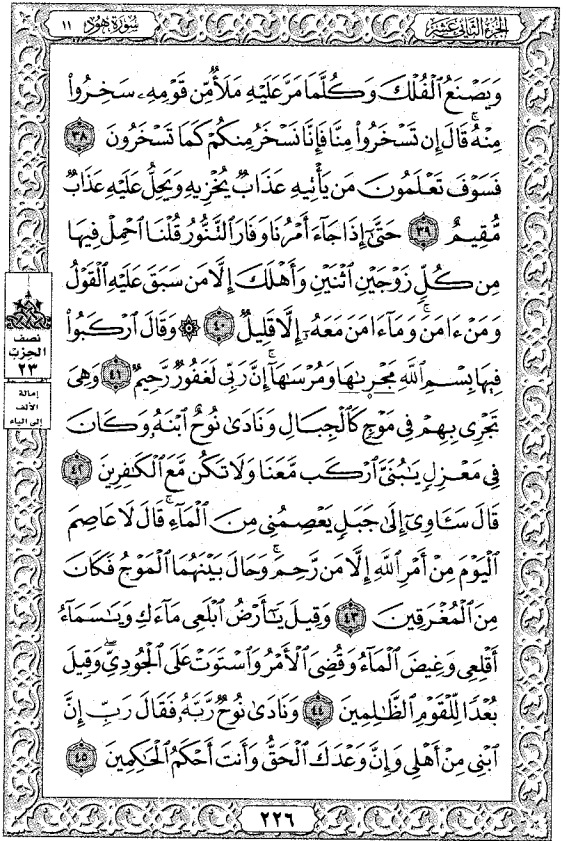 الجزء الثاني عشر
سورة هود ١١
وَيَصْنَعُ الْفُلْكَ وَكُلَّمَا مَرَّ عَلَيْهِ مَلَأٌ مِّن قَوْمِهِ سَخِرُوا
مِنْهُ قَالَ إِن تَسْخَرُوا مِنَّا فَإِنَّا نَسْخَرُ مِنكُمْ كَمَا تَسْخَرُونَ ٣٨
فَسَوْفَ تَعْلَمُونَ مَن يَأْتِيهِ عَذَابٌ يُخْزِيهِ وَيَحِلُّ عَلَيْهِ عَذَابٌ
مُّقِيمٌ ٣٩ حَتَّىٰ إِذَا جَاءَ أَمْرُنَا وَفَارَ التَّنُّورُ قُلْنَا احْمِلْ فِيهَا
مِن كُلٍّ زَوْجَيْنِ اثْنَيْنِ وَأَهْلَكَ إِلَّا مَن سَبَقَ عَلَيْهِ الْقَوْلُ
وَمَنْ ءَامَنَ وَمَا ءَامَنَ مَعَهُ إِلَّا قَلِيلٌ ٤٠ ۞ وَقَالَ ارْكَبُوا
فِيهَا بِسْمِ اللَّهِ مَجْر۪ىٰهَا وَمُرْسَىٰهَا إِنَّ رَبِّي لَغَفُورٌ رَّحِيمٌ ٤١ وَهِيَ
تَجْرِي بِهِمْ فِي مَوْجٍ كَالْجِبَالِ وَنَادَىٰ نُوحٌ ابْنَهُ وَكَانَ
فِي مَعْزِلٍ يَٰبُنَيَّ ارْكَب مَّعَنَا وَلَا تَكُن مَّعَ الْكَٰفِرِينَ ٤٢
قَالَ سَـَٔاوِي إِلَىٰ جَبَلٍ يَعْصِمُنِي مِنَ الْمَاءِ قَالَ لَا عَاصِمَ
الْيَوْمَ مِنْ أَمْرِ اللَّهِ إِلَّا مَن رَّحِمَ وَحَالَ بَيْنَهُمَا الْمَوْجُ فَكَانَ
مِنَ الْمُغْرَقِينَ ٤٣ وَقِيلَ يَٰأَرْضُ ابْلَعِي مَاءَكِ وَيَٰسَمَاءُ
أَقْلِعِي وَغِيضَ الْمَاءُ وَقُضِيَ الْأَمْرُ وَاسْتَوَتْ عَلَى الْجُودِيِّ وَقِيلَ
بُعْدًا لِّلْقَوْمِ الظَّٰلِمِينَ ٤٤ وَنَادَىٰ نُوحٌ رَّبَّهُ فَقَالَ رَبِّ إِنَّ
ابْنِي مِنْ أَهْلِي وَإِنَّ وَعْدَكَ الْحَقُّ وَأَنتَ أَحْكَمُ الْحَٰكِمِينَ ٤٥
٢٢٦
نصف
الحزب
٢٣
إمالة
الألف
إلى الياء